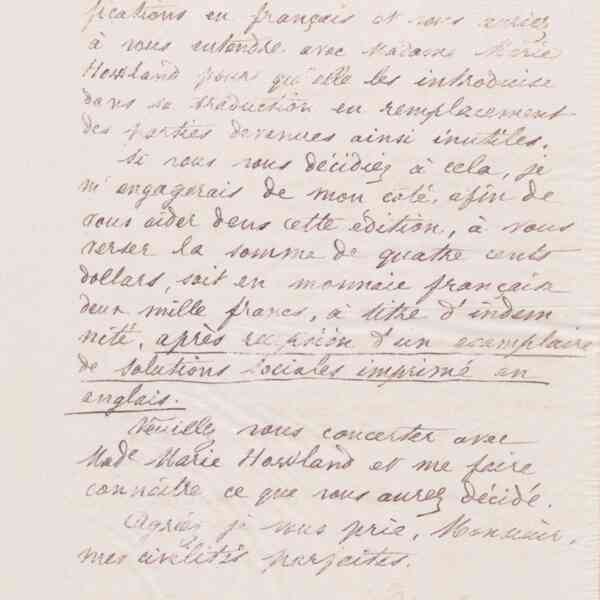 fications en français et vous auriez
à vous entendre avec Madame Marie
Howland pour qu'elle les introduise
dans sa traduction en remplacement
des parties devenues ainsi inutiles.
Si vous vous décidiez à cela, je
m'engagerais de mon côté, afin de
vous aider dans cette édition, à vous
verser la somme de quatre cents
dollars, soit en monnaie française
deux mille francs, à titre d'indem
nité, après réception d'un exemplaire
de solutions sociales imprimé en
anglais.
Veuillez vous concerter avec
Made Marie Howland et me faire
connaître ce que vous aurez décidé.
Agréez je vous prie, Monsieur,
mes civilités parfaites.